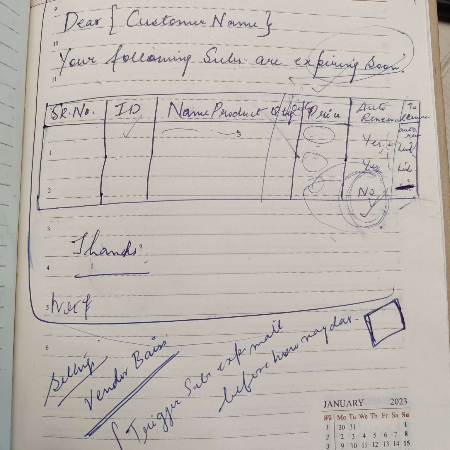 Dear {Customer Name}
Your following Subs are expiring soon.
SR.No. ID Name Product Price Auto Renewal
Yes
Yes
No
Thanks
Selling
Vendor Basis
Trigger Subs exp mail
before how many days.
JANUARY 2023
Mo Tu We Th Fr Sa Su
1 30 31 1
2 2 3 4 5 6 7 8